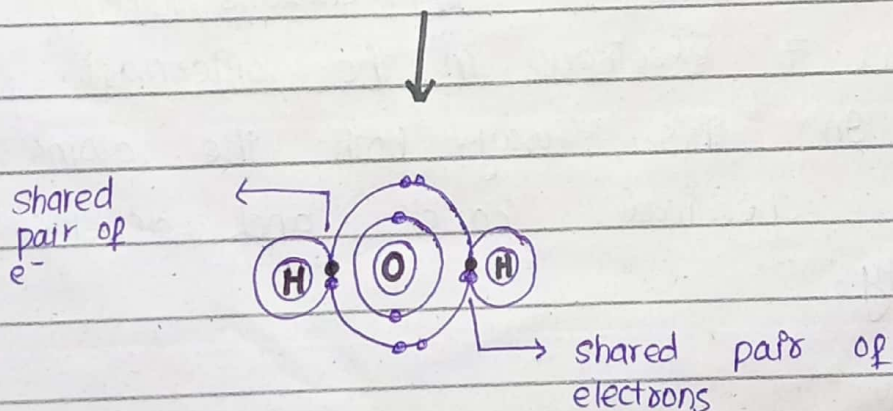 shared
pair of
e⁻
H O H
shared pair of
electrons